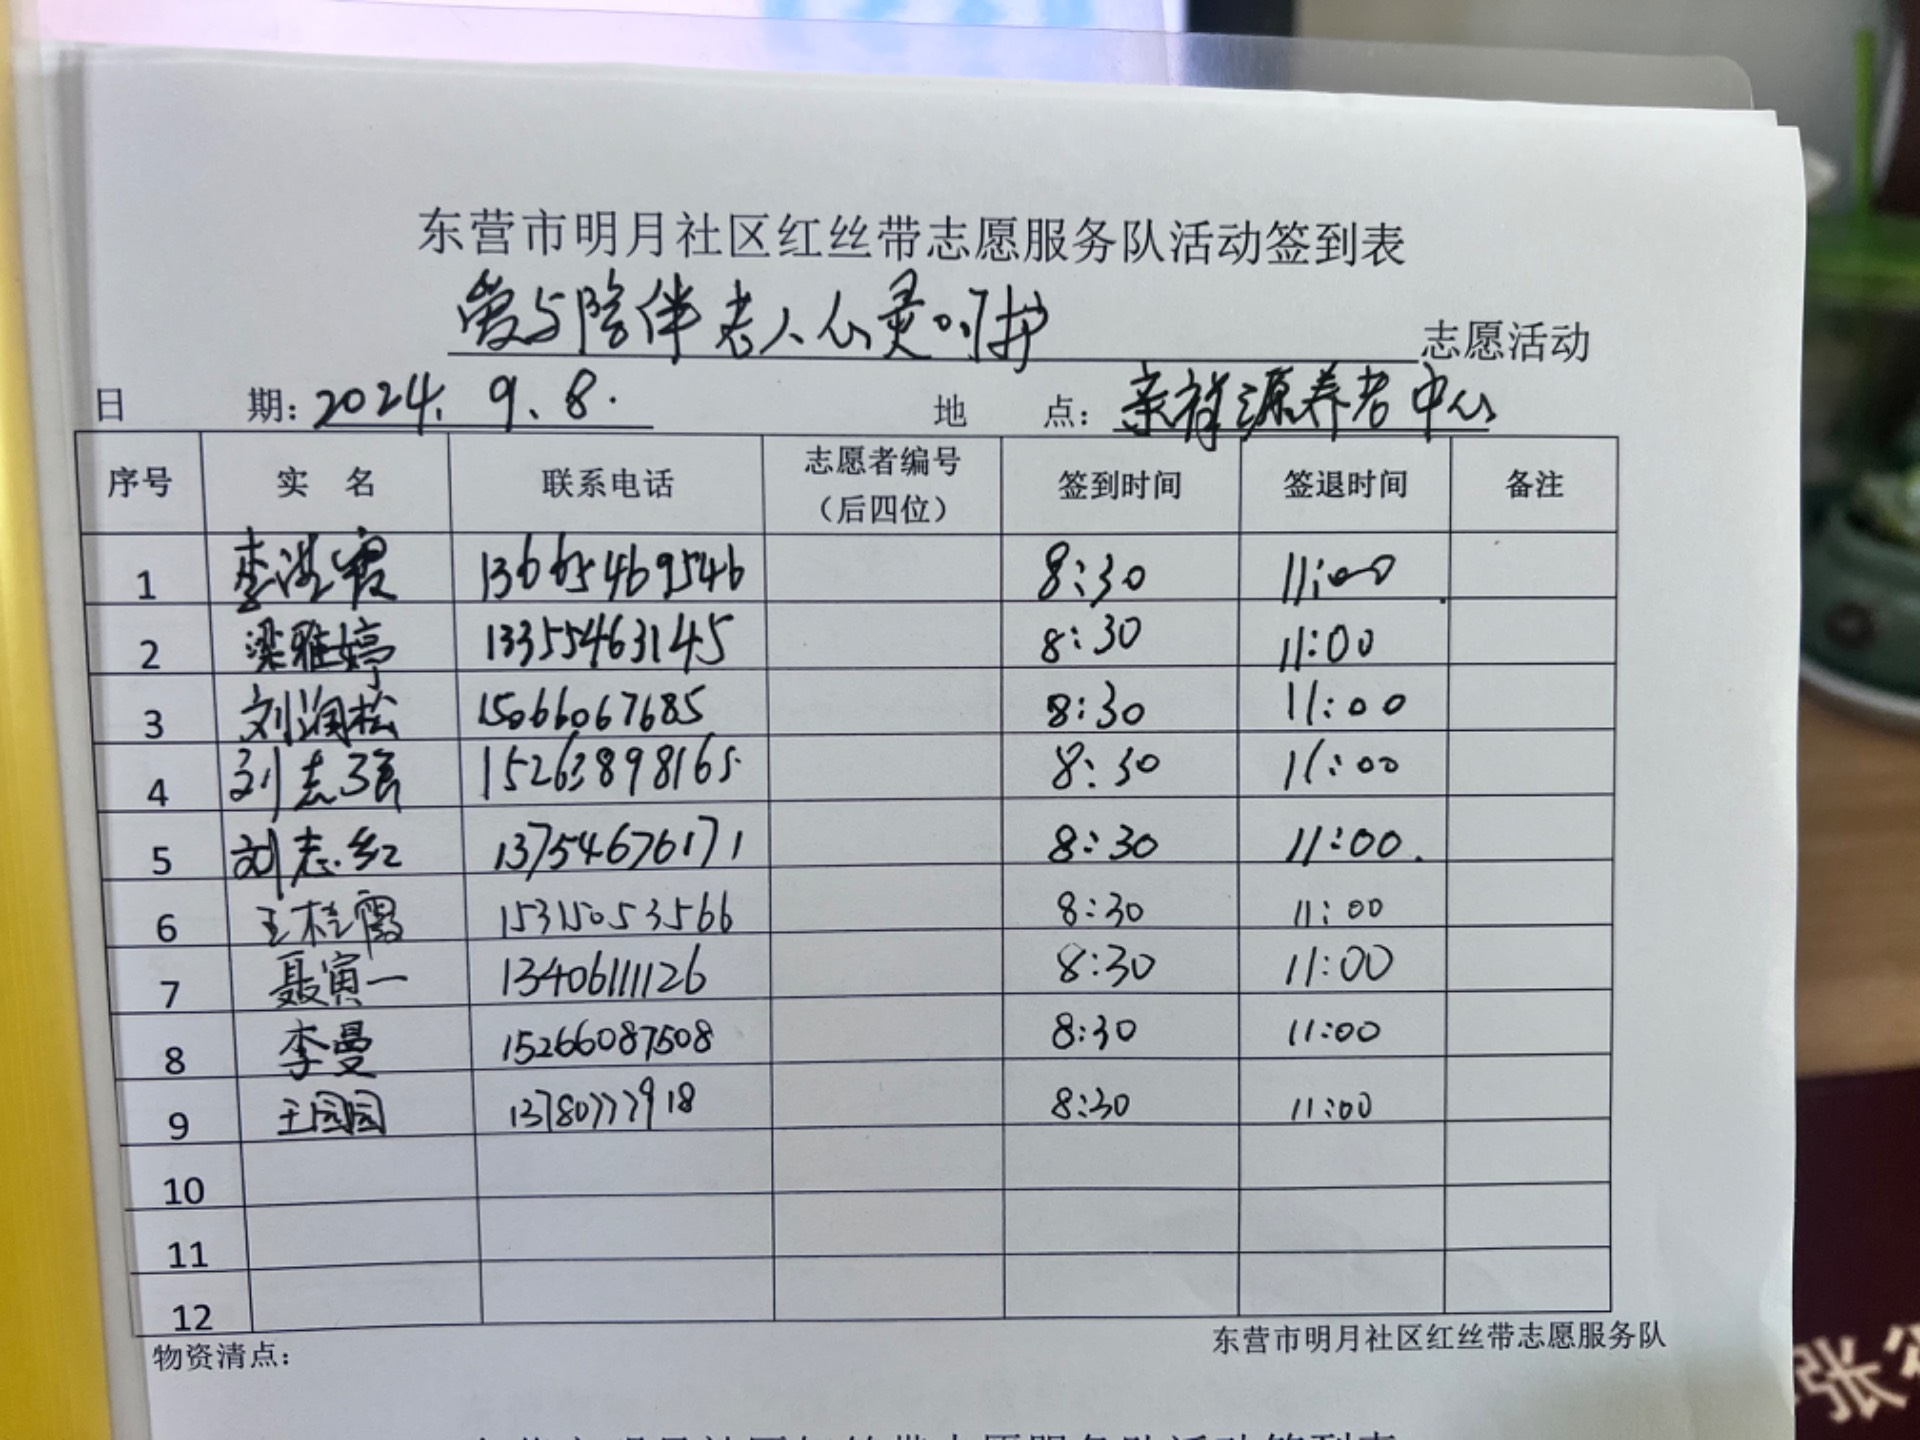 东营市明月社区红丝带志愿服务队活动签到表
爱与陪伴老人心灵呵护 志愿活动
日 期: 2024.9.8. 地 点: 亲祥源养老中心
序号 实 名 联系电话 志愿者编号（后四位） 签到时间 签退时间 备注
1 李洪霞 13665469546 8:30 11:00
2 梁雅婷 13355463145 8:30 11:00
3 刘润松 15066067685 8:30 11:00
4 刘志强 15263898165 8:30 11:00
5 刘志红 13754676171 8:30 11:00.
6 王桂霞 15315053566 8:30 11:00
7 聂寅一 13406111126 8:30 11:00
8 李曼 15266087508 8:30 11:00
9 王园园 13780777918 8:30 11:00
10
11
12
物资清点： 东营市明月社区红丝带志愿服务队
张